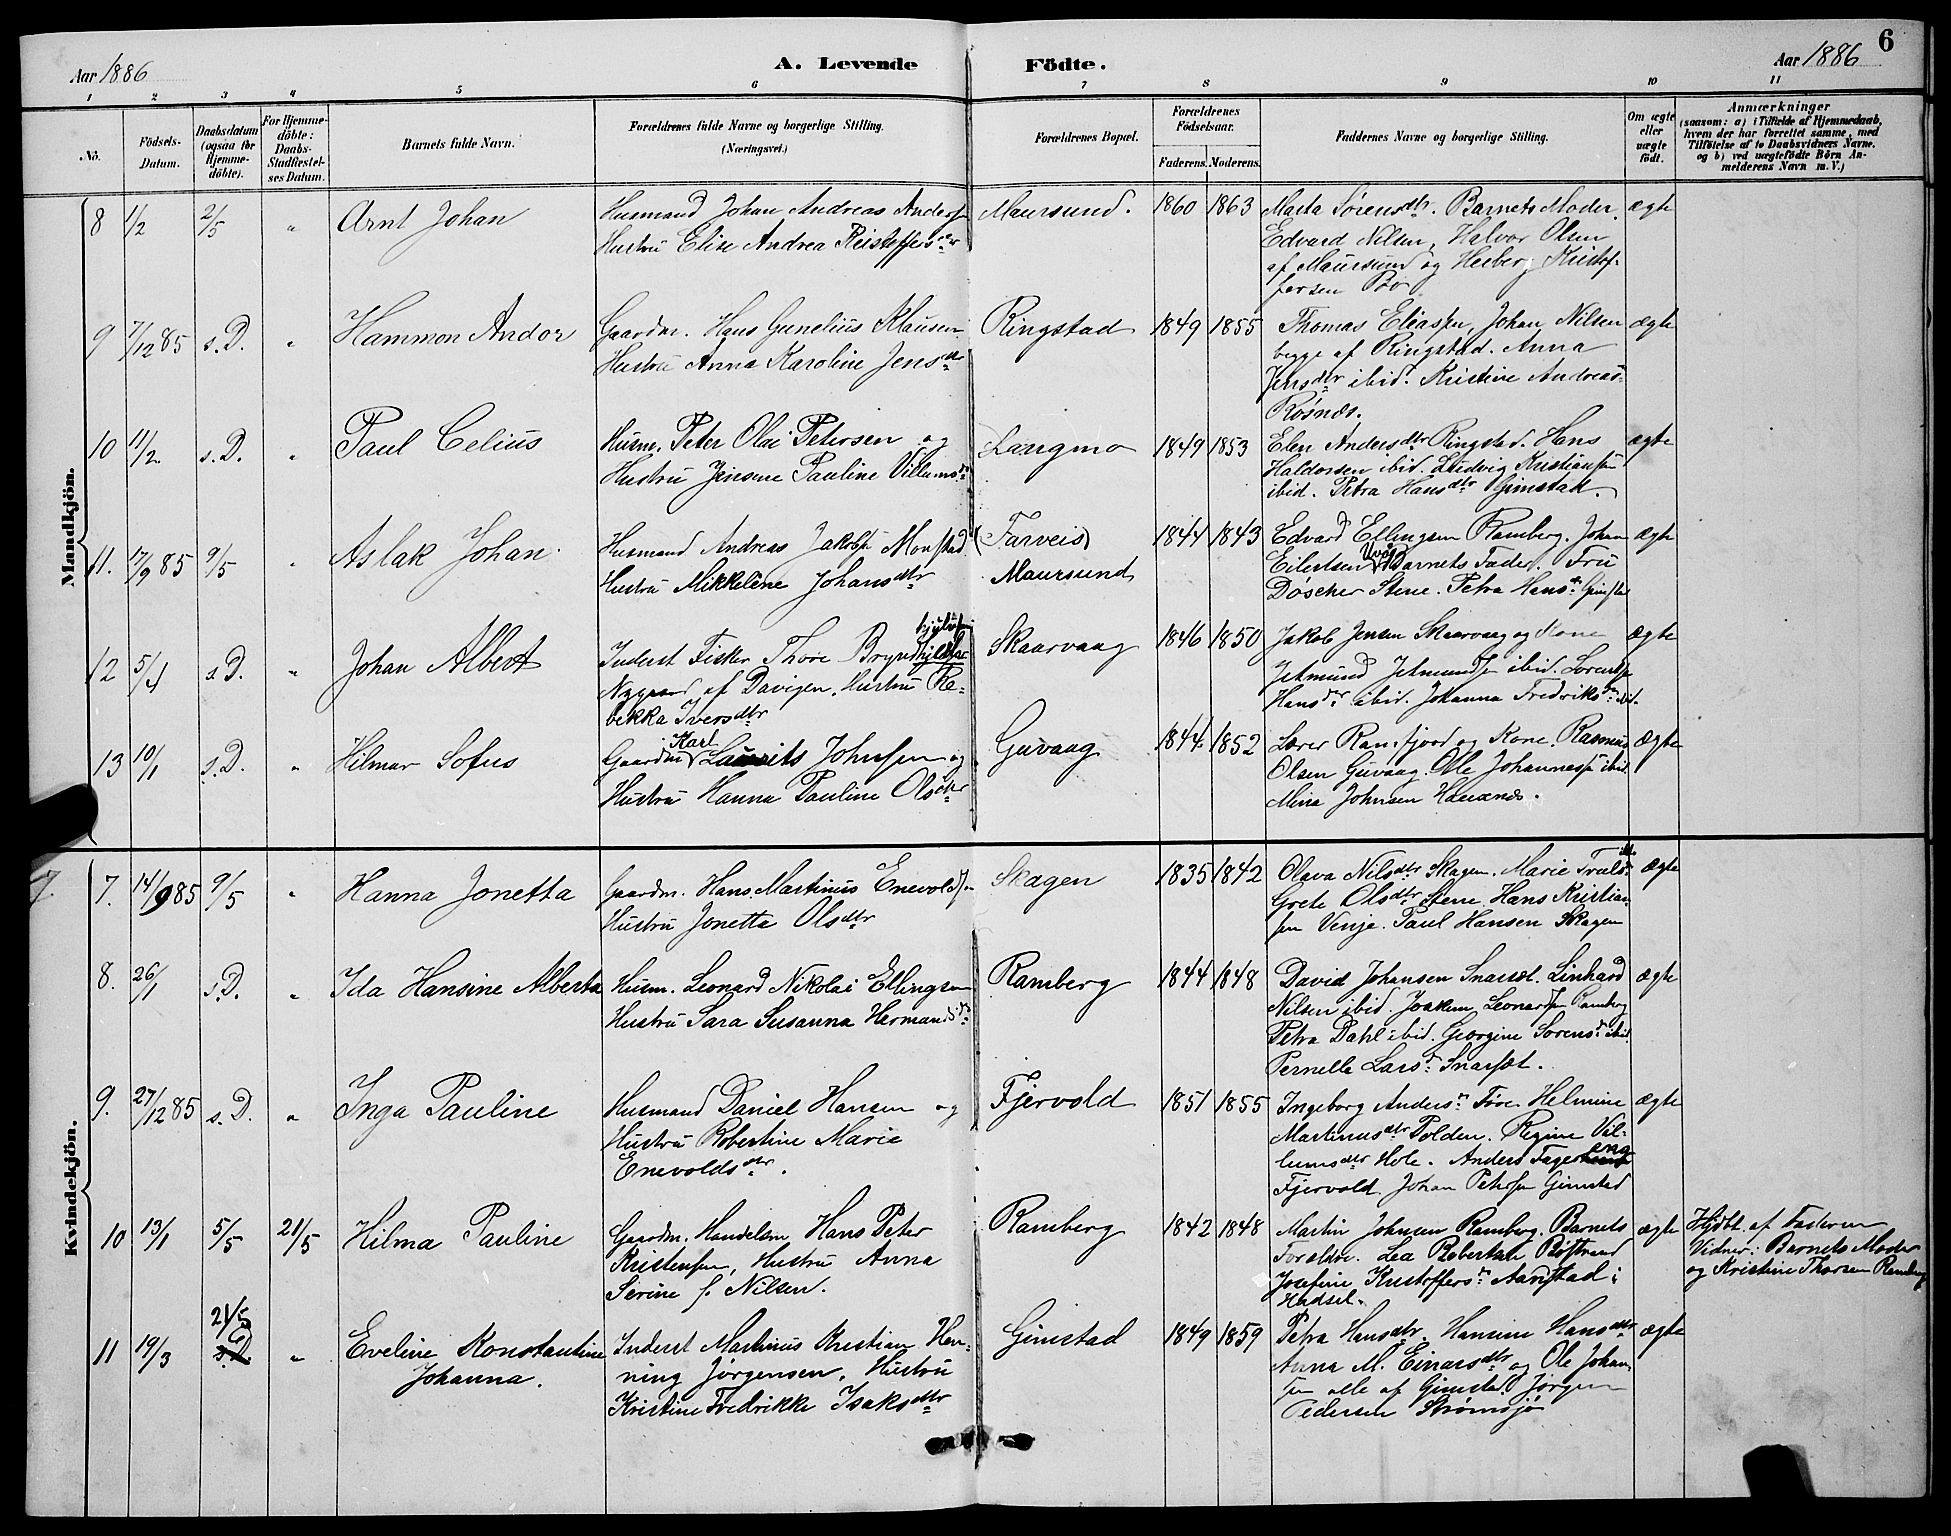 6
Aar 1886
A. Levende Födte.
Aar 1886
1 2 3 4 5 6 7 8 9 10 11
No.
Födsels-Datum.
Daabsdatum (ogsaa for Hjemme-döbte).
For Hjemme-döbte: Daabs-Stadfæstel-ses Datum.
Barnets fulde Navn.
Forældrenes fulde Navne og borgerlige Stilling.
(Næringsvei.)
Forældrenes Bopæl.
Forældrenes Födselsaar.
Faderens. Moderens.
Faddernes Navne og borgerlige Stilling.
Om ægte eller uægte födt.
Anmærkninger
(saasom: a) i Tilfælde af Hjemmedaab,
hvem der har forrettet samme, med
Tilföielse af to Daabsvidners Navne,
og b) ved uægtefödte Börn An-
melderens Navn m. V.)
Mandkjön.
8 1/2 2/5 " Arnt Johan
Husmand Johan Andreas Anders
Hustru Elise Andrea Kristoffersdtr
Maursund. 1860 1863
Marta Sørensdtr. Barnets Moder.
Edvard Nilsen, Halvor Olsen
af Maursund og Herberg Kristof-
fersen
ægte
9 7/12 85 s.D. " Hammon Andor
Gaardm. Hans Gunelius Klausen
Hustru Anna Karoline Jensdtr
Ringstad 1849 1855
Thomas Eliassen, Johan Nilsen
begge af Ringstad. Anna
Jensdtr ibid. Kristine Andreas
Røsnes.
ægte
10 11/2 s.D. " Paul Celius
Husm. Peter Olai Petersen og
Hustru Jensine Pauline Villumsdr
Langmo 1849 1853
Elen Andersdtr Ringstad. Hans
Haldorsen ibid. Ludvig Kristiansen
ibid. Petra Hansdtr Gimstad.
ægte
11. 17/9 85 9/5 " Aslak Johan
Husmand Andreas Jakobs Monstad
Hustru Mikkeline Johansdtr
(Farveis)
Maursund
1844 1843
Edvard Ellingsen Ramberg. Johan
Eilertsen Barnets Fader. Fru
Døscher Stene. Petra Hansdr Gimstad
ægte
12 5/4 s.D. " Johan Albert
Inderst Fisker Thore
Nygaard af Davigen. Hustru Re-
bekka Iversdtr
Skaarvaag 1846 1850
Jakob Jensen Skaarvaag og Kone
Jetmund Jetmunds ibid. Lorents
Hansdr ibid. Johanna Fredriksdr ibid.
ægte
13 10/1 s.D. " Hilmar Sofus
Gaardm Karl Laurits Johnsen og
Hustru Hanna Pauline Olsdtr
Guvaag 1844 1852
Lærer Ramfjord og Kone. Rasmus
Olsen Guvaag. Ole Johannes ibid.
Mina Johnsen Haanes.
ægte
Kvindekjön.
7. 14/9 85 9/5 " Hanna Jonetta
Gaardm. Hans Martinus Enevolds
Hustru Jonetta Olsdtr
Skagen 1835 1842
Olava Nilsdtr Skagen. Marie Trulsdr
Grete Olsdtr Stene. Hans Kristian-
sen Vinje. Paul Hansen Skagen
ægte
8. 26/1 s.D. " Ida Hansine Alberta
Husm. Leonard Nikolai Ellingsen
Hustru Sara Susanna Hermansdr
Ramberg 1844 1848
David Johansen Snarset. Linhard
Nilsen ibid. Joakim Leonards Ramberg
Petra Dahl ibid. Georgine Sørensdr ibid.
Pernelle Larsdr Snarset.
ægte
9. 27/12 85 s.D. " Inga Pauline
Husmand Daniel Hansen og
Hustru Robertine Marie
Enevoldsdtr.
Fjervold 1851 1855
Ingeborg Andersdr Føre. Helmine
Martinusdtr Polden. Regine Vil-
lumsdtr Hole. Anders Fagereng
Fjervold. Johan Peters Gimstad
ægte
10 13/1 5/5 21/5 Hilma Pauline
Gaardm. Handelsm. Hans Peter
Kristensen, Hustru Anna
Serine f. Nilsen.
Ramberg 1842 1848
Martin Johnsen Ramberg. Barnets
Foreldre. Lea Robertsen Røstrand
Josefine Kristoffersdr Aarstad i
Hadsel.
ægte
Hjdbt af Faderen
Vidner: Barnets Moder
og Kristine Thorsen Ramberg
11 19/3 21/5 s.D. " Eveline Konstantine
Johanna.
Inderst Martinus Kristian Hen-
ning Jørgensen, Hustru
Kristine Fredrikke Isaksdtr
Gimstad 1849 1859
Petra Hansdtr. Hansine Hansdtr
Anna M. Einarsdtr og Ole Johan-
sen alle af Gimstad. Jørgen
Pedersen Strømsjø
ægte